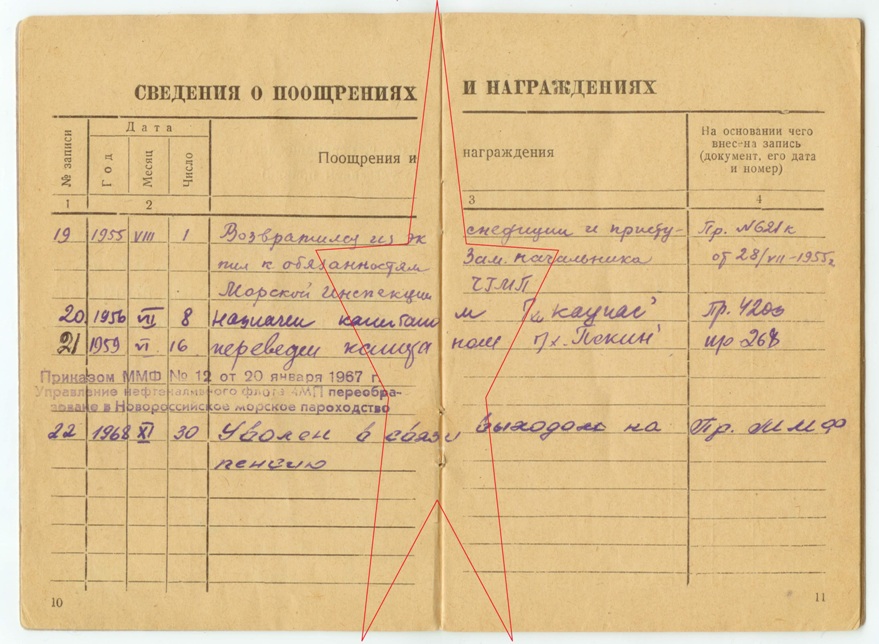 СВЕДЕНИЯ О ПООЩРЕНИЯХ И НАГРАЖДЕНИЯХ
№ записи
Дата
Год
Месяц
Число
Поощрения и награждения
На основании чего
внесена запись
(документ, его дата
и номер)
1 2 3 4
19 1955 VIII 1 Возвратился из экспедиции и присту- Пр. №621к
пил к обязанностям Зам. начальника от 28/VII-1955г
Морской Инспекции ЧГМП
20 1956 VII 8 назначен капитаном п/х "Каунас" пр. 420з
21 1959 VI 16 переведен капитаном п/х. "Пекин" пр 267
Приказом ММФ № 12 от 20 января 1967 г.
Управление нефтеналивного флота ЧМП переобра-
зовано в Новороссийское морское пароходство
22 1968 XI 30 Уволен в связи выходом на Пр. ММФ
пенсию
10
11